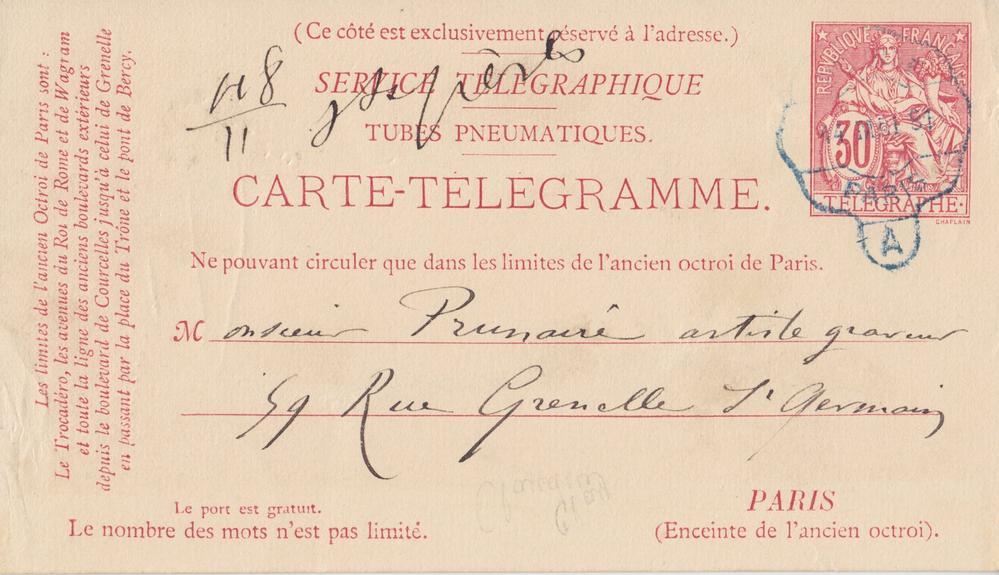 (Ce côté est exclusivement réservé à l'adresse.)
SERVICE TÉLÉGRAPHIQUE
TUBES PNEUMATIQUES.
CARTE-TÉLÉGRAMME.
Ne pouvant circuler que dans les limites de l'ancien octroi de Paris.
Les limites de l'ancien Octroi de Paris sont :
Le Trocadéro, les avenues du Roi de Rome et de Wagram
et toute la ligne des anciens boulevards extérieurs
depuis le boulevard de Courcelles jusqu'à celui de Grenelle
en passant par la place du Trône et le pont de Bercy.
118
11
RÉPUBLIQUE FRANÇAISE
30
TÉLÉGRAPHE
CHAPLAIN
PARIS
A
Monsieur Prunaire artiste graveur
59 Rue Grenelle St Germain
Le port est gratuit.
Le nombre des mots n'est pas limité.
PARIS
(Enceinte de l'ancien octroi).